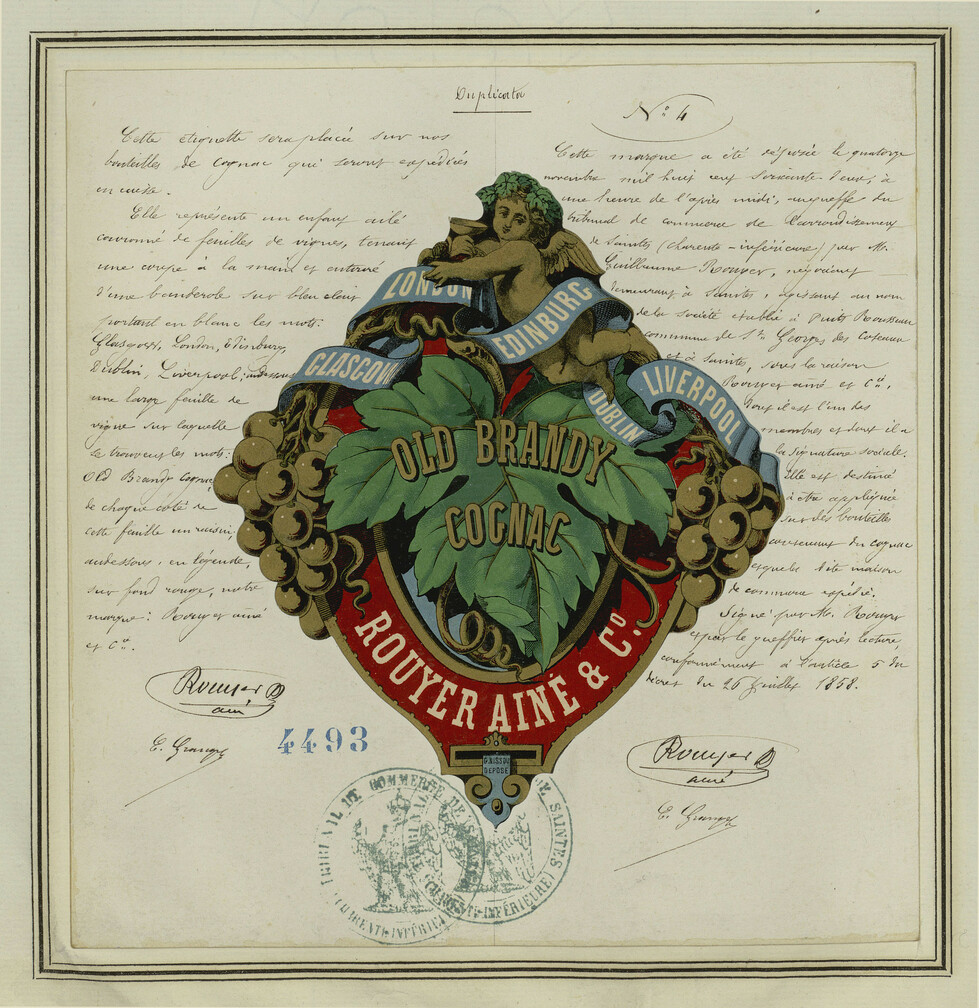 Duplicata
Cette etiquette sera placée sur nos
bouteilles de Cognac qui seront expédiées
en caisse.
Elle représente un enfant ailé
couronné de feuilles de vignes, tenant
une coupe à la main et entouré
d'une banderole sur bleu clair
portant en blanc les mots:
Glascow, London, Edinburg,
Dublin, Liverpool; au dessous
une large feuille de
vigne sur laquelle
se trouvent les mots:
Old Brandy Cognac
de chaque coté de
cette feuille un raisin;
audessous, en légende,
sur fond rouge, notre
marque: Rouyer ainé
et Cie.
Rouyer
ainé
4493
N° 4
Cette marque a été déposée le quatorze
novembre mil huit cent soixante deux, à
une heure de l'après midi, au greffe du
tribunal de commerce de l'arrondissement
de Saintes (charente-inférieure) par Mr.
Guillaume Rouyer, négociant
demeurant à Saintes, agissant au nom
de la société établie à
commune de St. Georges des Coteaux
et à Saintes, sous la raison
Rouyer ainé et Cie.
dont il est l'un des
membres et dont il a
la signature sociale.
Elle est destinée
à être appliquée
sur des bouteilles
contenant du cognac
lesquels dite maison
de commerce expédie.
Signé par Mr. Rouyer
et par le greffier après lecture,
conformément à l'article 5 du
décret du 26 juillet 1858.
Rouyer
ainé
LONDON
EDINBURG
GLASCOW
DUBLIN
LIVERPOOL
OLD BRANDY
COGNAC
ROUYER AINÉ & Co.
DÉPOSÉ
TRIBUNAL DE COMMERCE DE SAINTES
(CHARENTE INFÉRIEURE)